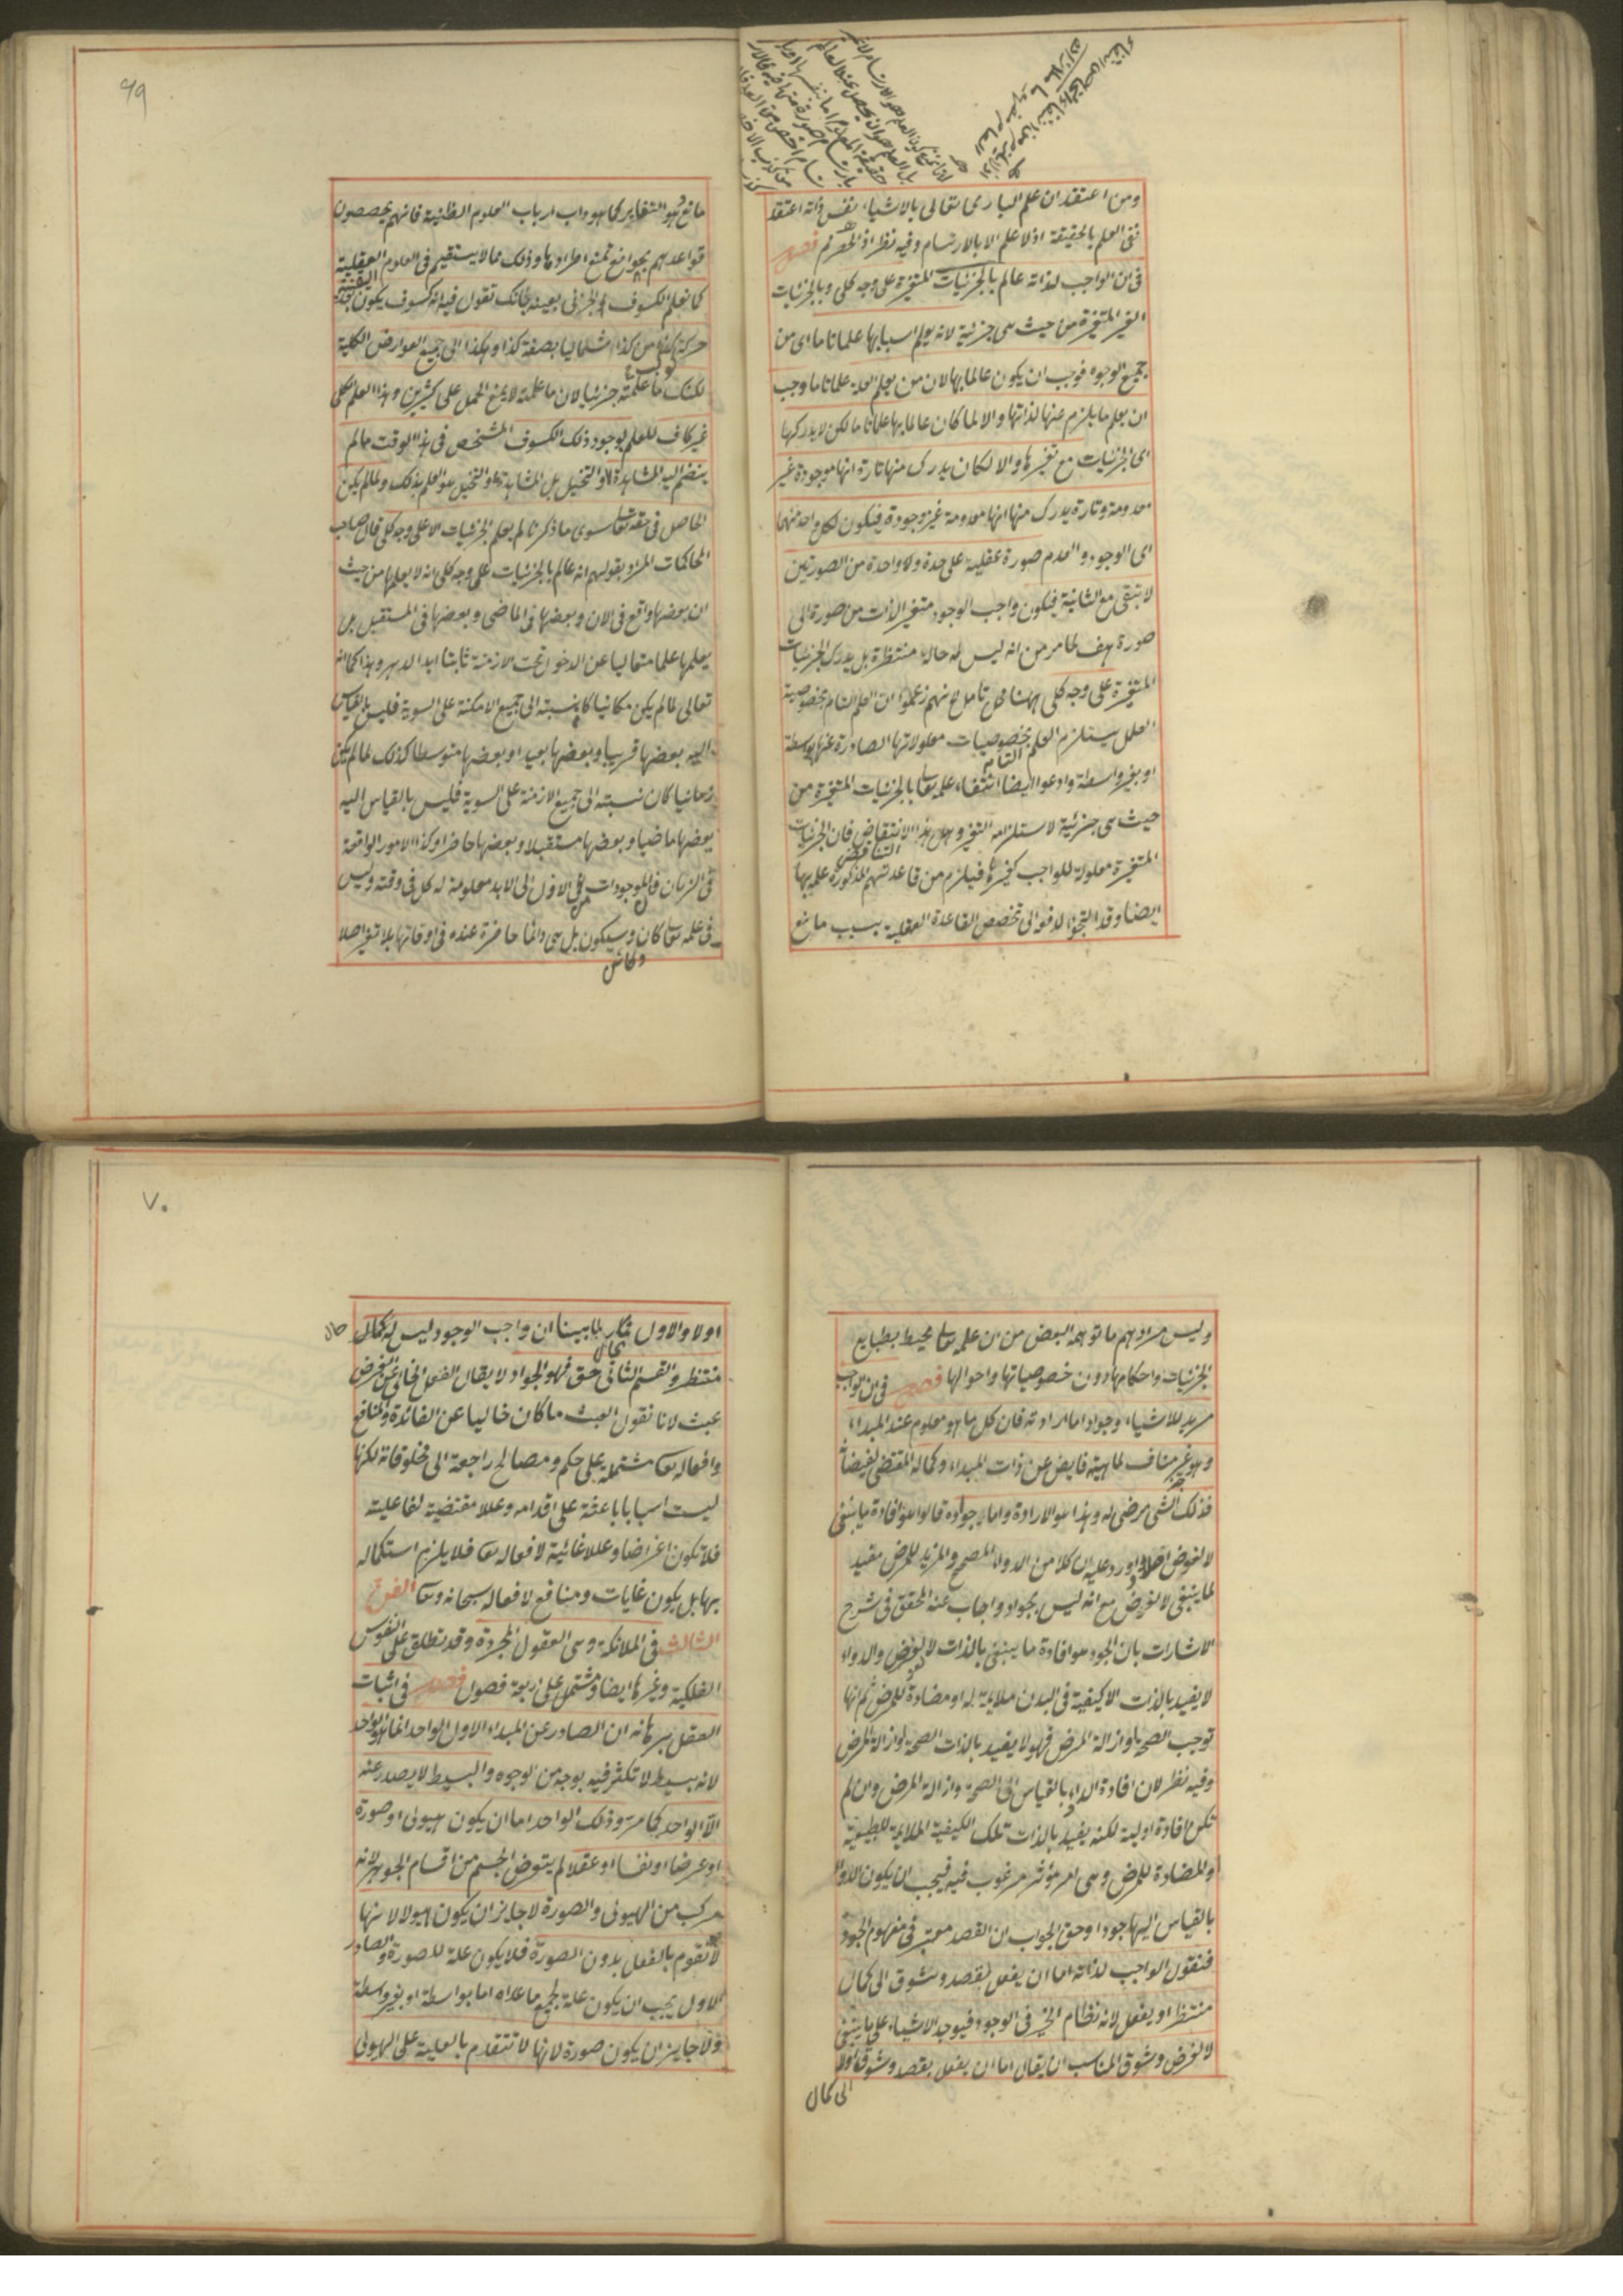 ومن اعتقد ان علم الباري تعالى بالاشياء نفس ذاته اعتقد
نفى العلم بالحقيقة اذ لا علم الا بالارتسام وفيه نظر اذ الحصر ثم فصل
في ان الواجب لذاته عالم بالجزئيات المتغيرة على وجه كلي وبالجزئيات
الغير المتغيرة من حيث هي جزئية لانه يعلم اسبابها علما تاما اى من
جميع الوجوه فوجب ان يكون عالما بها لان من يعلم العلة علما تاما وجب
ان يعلم ما يلزم عنها لذاتها والا لما كان عالما بها علما تاما لكن لا يدركها
اى الجزئيات مع تغيرها والا لكان يدرك منها تارة انها موجودة غير
معدومة وتارة يدرك منها انها معدومة غير موجودة فيكون لكل واحد منهما
اى الوجود والعدم صورة عقلية على حدة ولا واحدة من الصورتين
لا تبقى مع الثانية فيكون واجب الوجود متغير الذات من صورة الى
صورة هف لما مر من انه ليس له حالة منتظرة بل يدرك الجزئيات
المتغيرة على وجه كلي ههنا محل تامل لانهم زعموا ان العلم التام بخصوصية
العلل يستلزم العلم بخصوصيات معلولاتها الصادرة عنها بواسطة
التام
او بغير واسطة وادعوا ايضا انتفاء علمه تعالى بالجزئيات المتغيرة من
حيث هي جزئية لاستلزامه التغير وهل هذا الا تناقض فان الجزئيات
التناقض
المتغيرة معلولة للواجب كغيرها فيلزم من قاعدتهم المذكورة علمه بها
ايضا وقد التجؤا لدفعه الى تخصيص القاعدة العقلية بسبب مانع
٦٩
مانع وهو التغاير كما هو داب ارباب العلوم الظنية فانهم يخصصون
قواعدهم بموانع تمنع اطرادها وذلك مما لا يستقيم في العلوم العقلية
اليقينية
كما تعلم الكسوف الجزئي بعينه بانك تقول فيه انه كسوف يكون بعد
حركة كذا من كذا شماليا بصفة كذا وهكذا الى جميع العوارض الكلية
لكنك ما علمته جزئيا لان ما علمته لا يمنع الحمل على كثيرين وهذا العلم الكلي
غير كاف للعلم بوجود ذلك الكسوف المشخص في هذا الوقت ما لم
ينضم اليه المشاهدة او التخيل بل المشاهدة والتخيل هو العلم بذلك ولما لم يكن
الحاصل في حقه تعالى سوى ما ذكرنا لم يعلم الجزئيات الا على وجه كلي قال صاحب
المحاكمات المراد بقولهم انه عالم بالجزئيات على وجه كلي انه لا يعلمها من حيث
ان بعضها واقع في الان وبعضها في الماضي وبعضها في المستقبل بل
يعلمها علما متعاليا عن الدخول تحت الازمنة ثابتا ابد الدهر وهذا كما انه
تعالى لما لم يكن مكانيا كان نسبته الى جميع الامكنة على السوية فليس بالقياس
اليه بعضها قريبا وبعضها بعيدا وبعضها متوسطا كذلك لما لم يكن
زمانيا كان نسبته الى جميع الازمنة على السوية فليس بالقياس اليه
بعضها ماضيا وبعضها مستقبلا وبعضها حاضرا وكذا الامور الواقعة
في الزمان فالموجودات من الازل الى الابد معلومة له كل في وقته وليس
في علمه تعالى كان وسيكون بل هي دائما حاضرة عنده في اوقاتها بلا تغير اصلا
وكائن
وليس مرادهم ما توهمه البعض من ان علمه تعالى محيط بطبايع
الجزئيات واحكامها دون خصوصياتها واحوالها فصل في ان الواجب
مريد للاشياء وجواد اما ارادته فان كل ما هو معلوم عند المبداء
وهو غير مناف لماهيته فايض عن ذات المبداء وكماله المقتضى لفيضانه
فذلك الشئ مرضي له وهذا هو الارادة واما جواده قالوا هو افادة ما ينبغي
لا لعوض اصلا واورد عليه ان كلا من الدواء المصحح والمزيد للمرض مفيد
لما ينبغي لا لعوض مع انه ليس بجواد واجاب عنه المحقق في شرح
الاشارات بان الجود هو افادة ما ينبغي بالذات لا لعوض والدواء
لا يفيد بالذات الا كيفية في البدن ملايمة له او مضادة للمرض ثم انها
توجب الصحة او ازالة المرض فهو لا يفيد بالذات الصحة او ازالة المرض
وفيه نظر لان افادة الدواء بالقياس الى الصحة وازالة المرض وان لم
تكن افادة اولية لكنه يفيد بالذات تلك الكيفية الملايمة للطبيعة
والمضادة للمرض وهي امر مؤثر مرغوب فيه فيجب ان يكون الدواء
بالقياس اليها جودا وحق الجواب ان القصد معتبر في مفهوم الجود
فنقول الواجب لذاته اما ان يفعل لقصد وشوق الى كمال
منتظر او يفعل لانه نظام الخير في الوجود فيوجد الاشياء على ما ينبغي
لا لغرض وشوق المناسب ان يقال اما ان يفعل بقصد وشوق اولا
الى كمال
٧٠
اولا والاول محال لما بينا ان واجب الوجود ليس له كمال
منتظر والقسم الثاني حق فهو الجواد لا يقال الفعل الخالي عن الغرض
عبث لانا نقول العبث ما كان خاليا عن الفائدة والمنافع
وافعاله تعالى مشتملة على حكم ومصالح راجعة الى مخلوقاته لكنها
ليست اسبابا باعثة على اقدامه وعللا مقتضية لفاعليته
فلا تكون اغراضا وعللا غائية لافعاله تعالى فلا يلزم استكماله
بها بل يكون غايات ومنافع لافعاله سبحانه وتعالى الفن
الثالث في الملائكة وهي العقول المجردة وقد تطلق على النفوس
الفلكية وغيرها ايضا ومشتمل على اربعة فصول فصل في اثبات
العقل برهانه ان الصادر عن المبداء الاول الواحد انما هو الواحد
لانه بسيط لا تكثر فيه بوجه من الوجوه والبسيط لا يصدر عنه
الا الواحد كما مر وذلك الواحد اما ان يكون هيولى او صورة
او عرضا او نفسا او عقلا لم يتعرض الجسم من اقسام الجوهر لانه
مركب من الهيولى والصورة لا جايز ان يكون هيولى لانها
لا تقوم بالفعل بدون الصورة فلا يكون علة للصورة والصادر
الاول يجب ان يكون علة لجميع ما عداه اما بواسطة او بغير واسطة
ولا جايز ان يكون صورة لانها لا تتقدم بالعلية على الهيولى